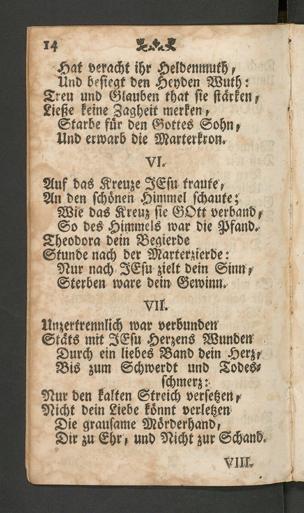 14
Hat veracht ihr Heldenmuth,
Und besiegt den Heyden Wuth:
Treu und Glauben that sie stärken,
Ließe keine Zagheit merken,
Starbe für den Gottes Sohn,
Und erwarb die Marterkron.
VI.
Auf das Kreuze JEsu traute,
An den schönen Himmel schaute;
Wie das Kreuz sie GOtt verband,
So des Himmels war die Pfand.
Theodora dein Begierde
Stunde nach der Marterzierde:
Nur nach JEsu zielt dein Sinn,
Sterben ware dein Gewinn.
VII.
Unzertrennlich war verbunden
Stäts mit JEsu Herzens Wunden
Durch ein liebes Band dein Herz,
Bis zum Schwerdt und Todes-
schmerz:
Nur den kalten Streich versetzen,
Nicht dein Liebe könnt verletzen
Die grausame Mörderhand,
Dir zu Ehr, und Nicht zur Schand.
VIII.